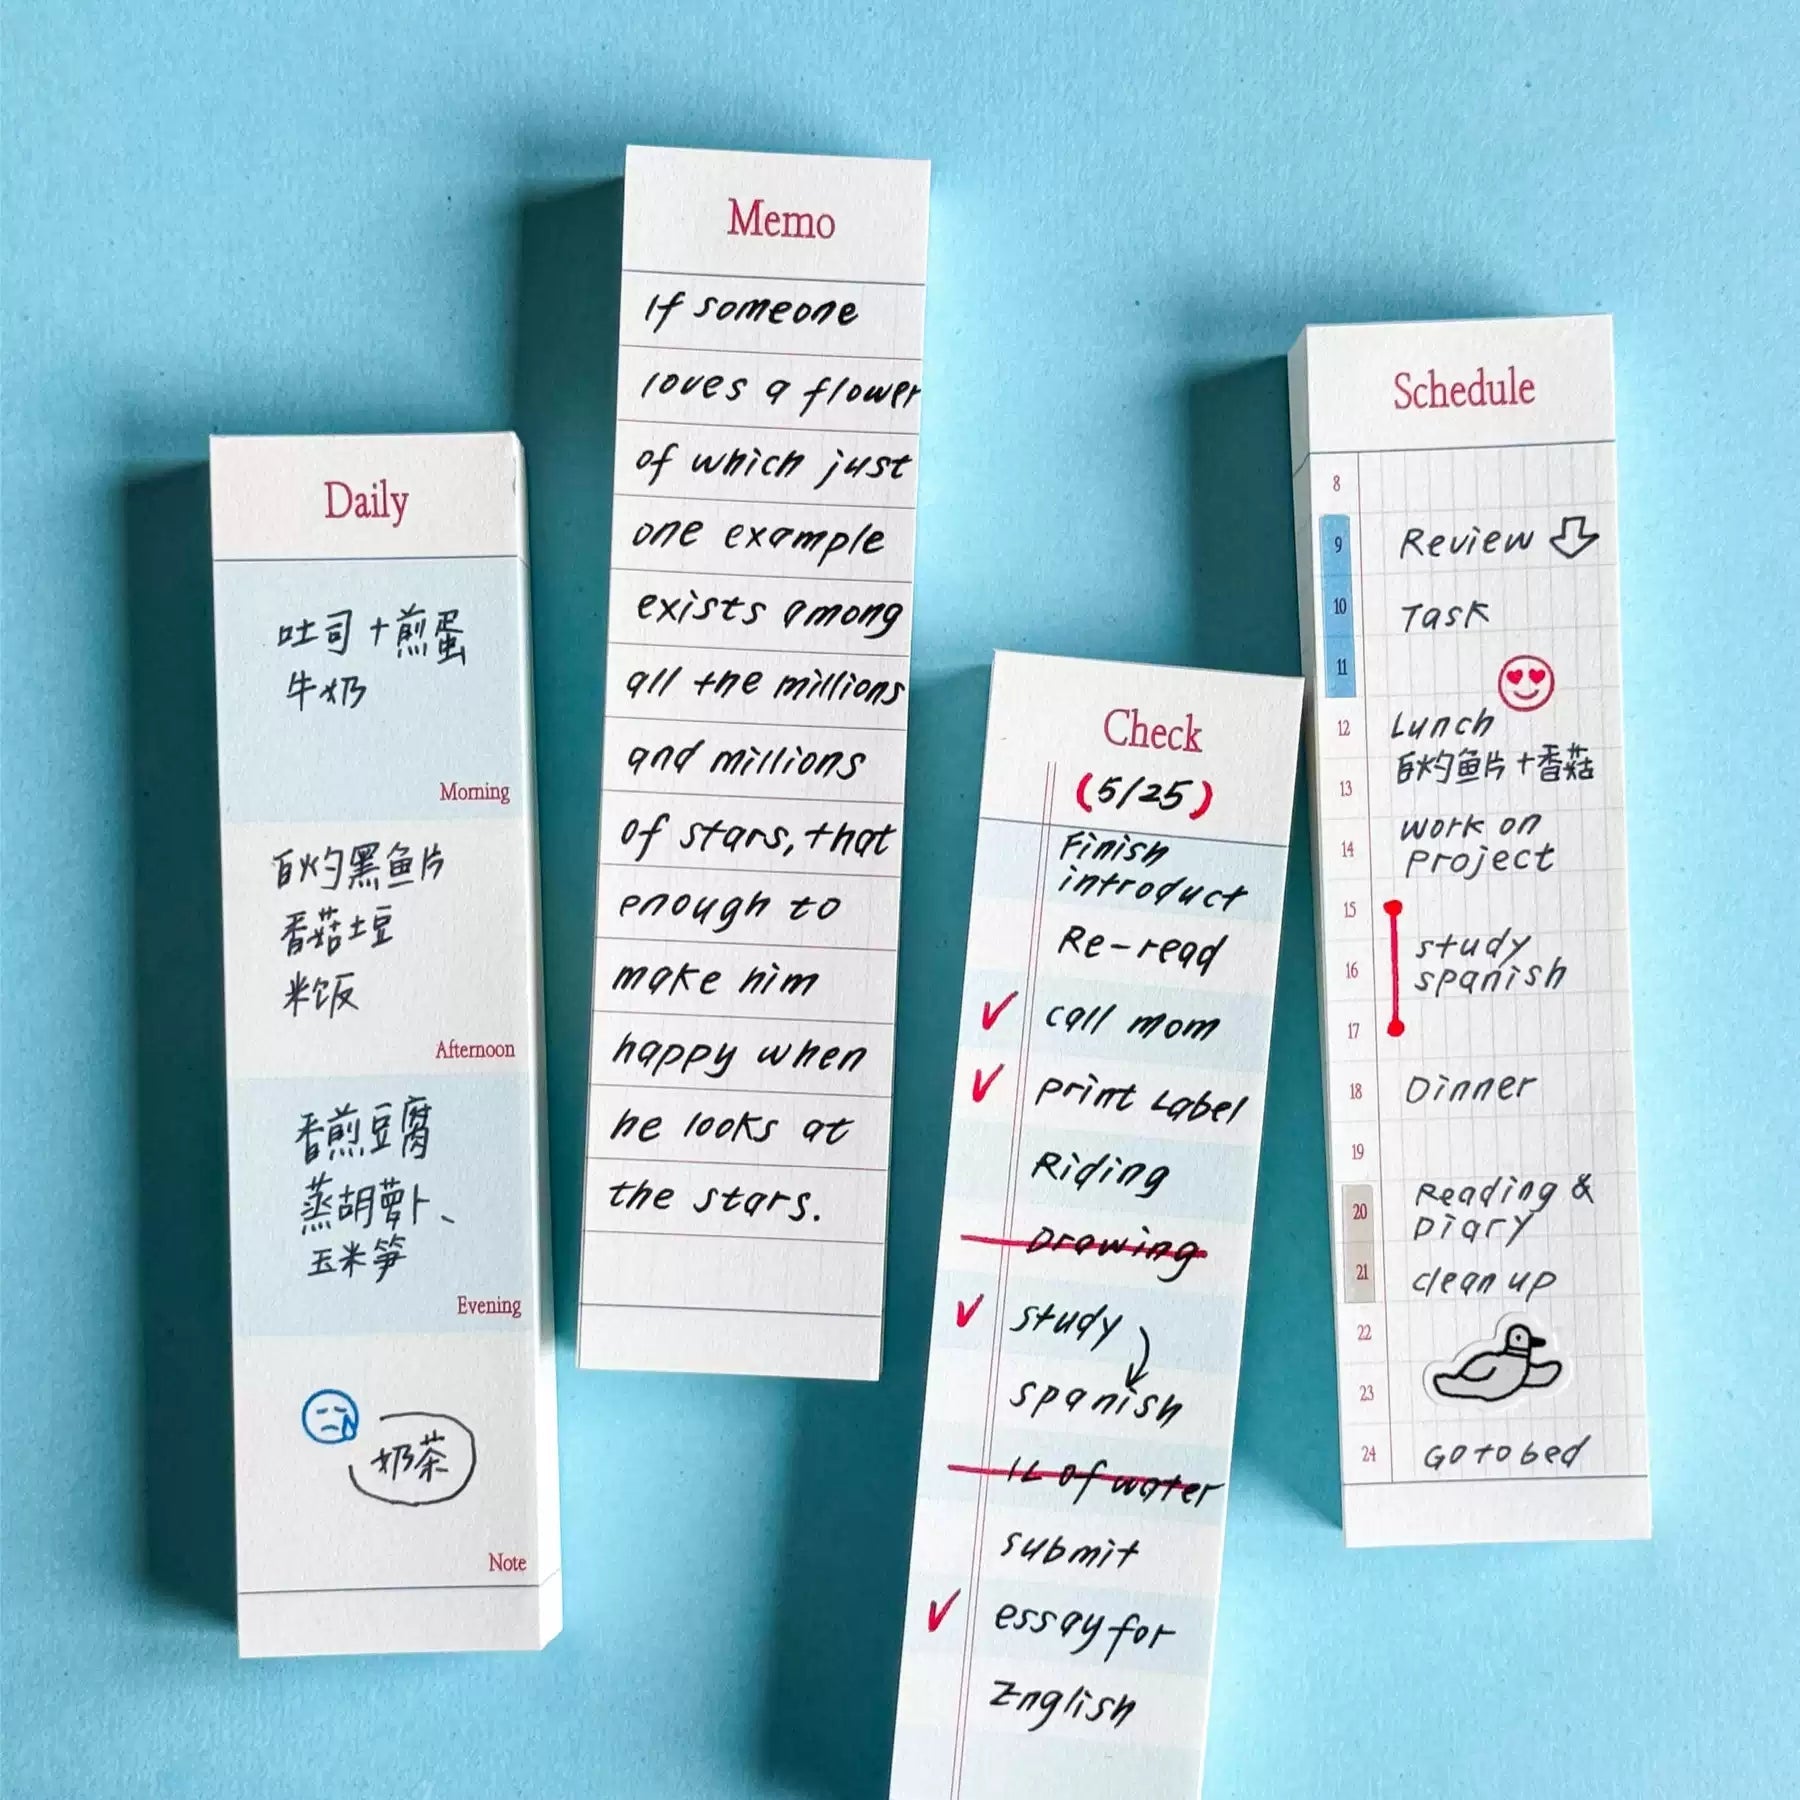 Daily
吐司+煎蛋
牛奶
Morning
白灼黑鱼片
香菇土豆
米饭
Afternoon
香煎豆腐
蒸胡萝卜、
玉米笋
Evening
奶茶
Note
Memo
If someone
loves a flower
of which just
one example
exists among
all the millions
and millions
of stars, that
enough to
make him
happy when
he looks at
the stars.
Check
(5/25)
Finish
introduct
Re-read
call mom
print Label
Riding
Drawing
study
spanish
1L of water
submit
essay for
English
Schedule
8
9 Review
10 Task
11
12 Lunch
白灼鱼片+香菇
13
work on
14 project
15
study
16 spanish
17
18 Dinner
19
Reading &
20 Diary
21 clean up
22
23
24 Go to bed